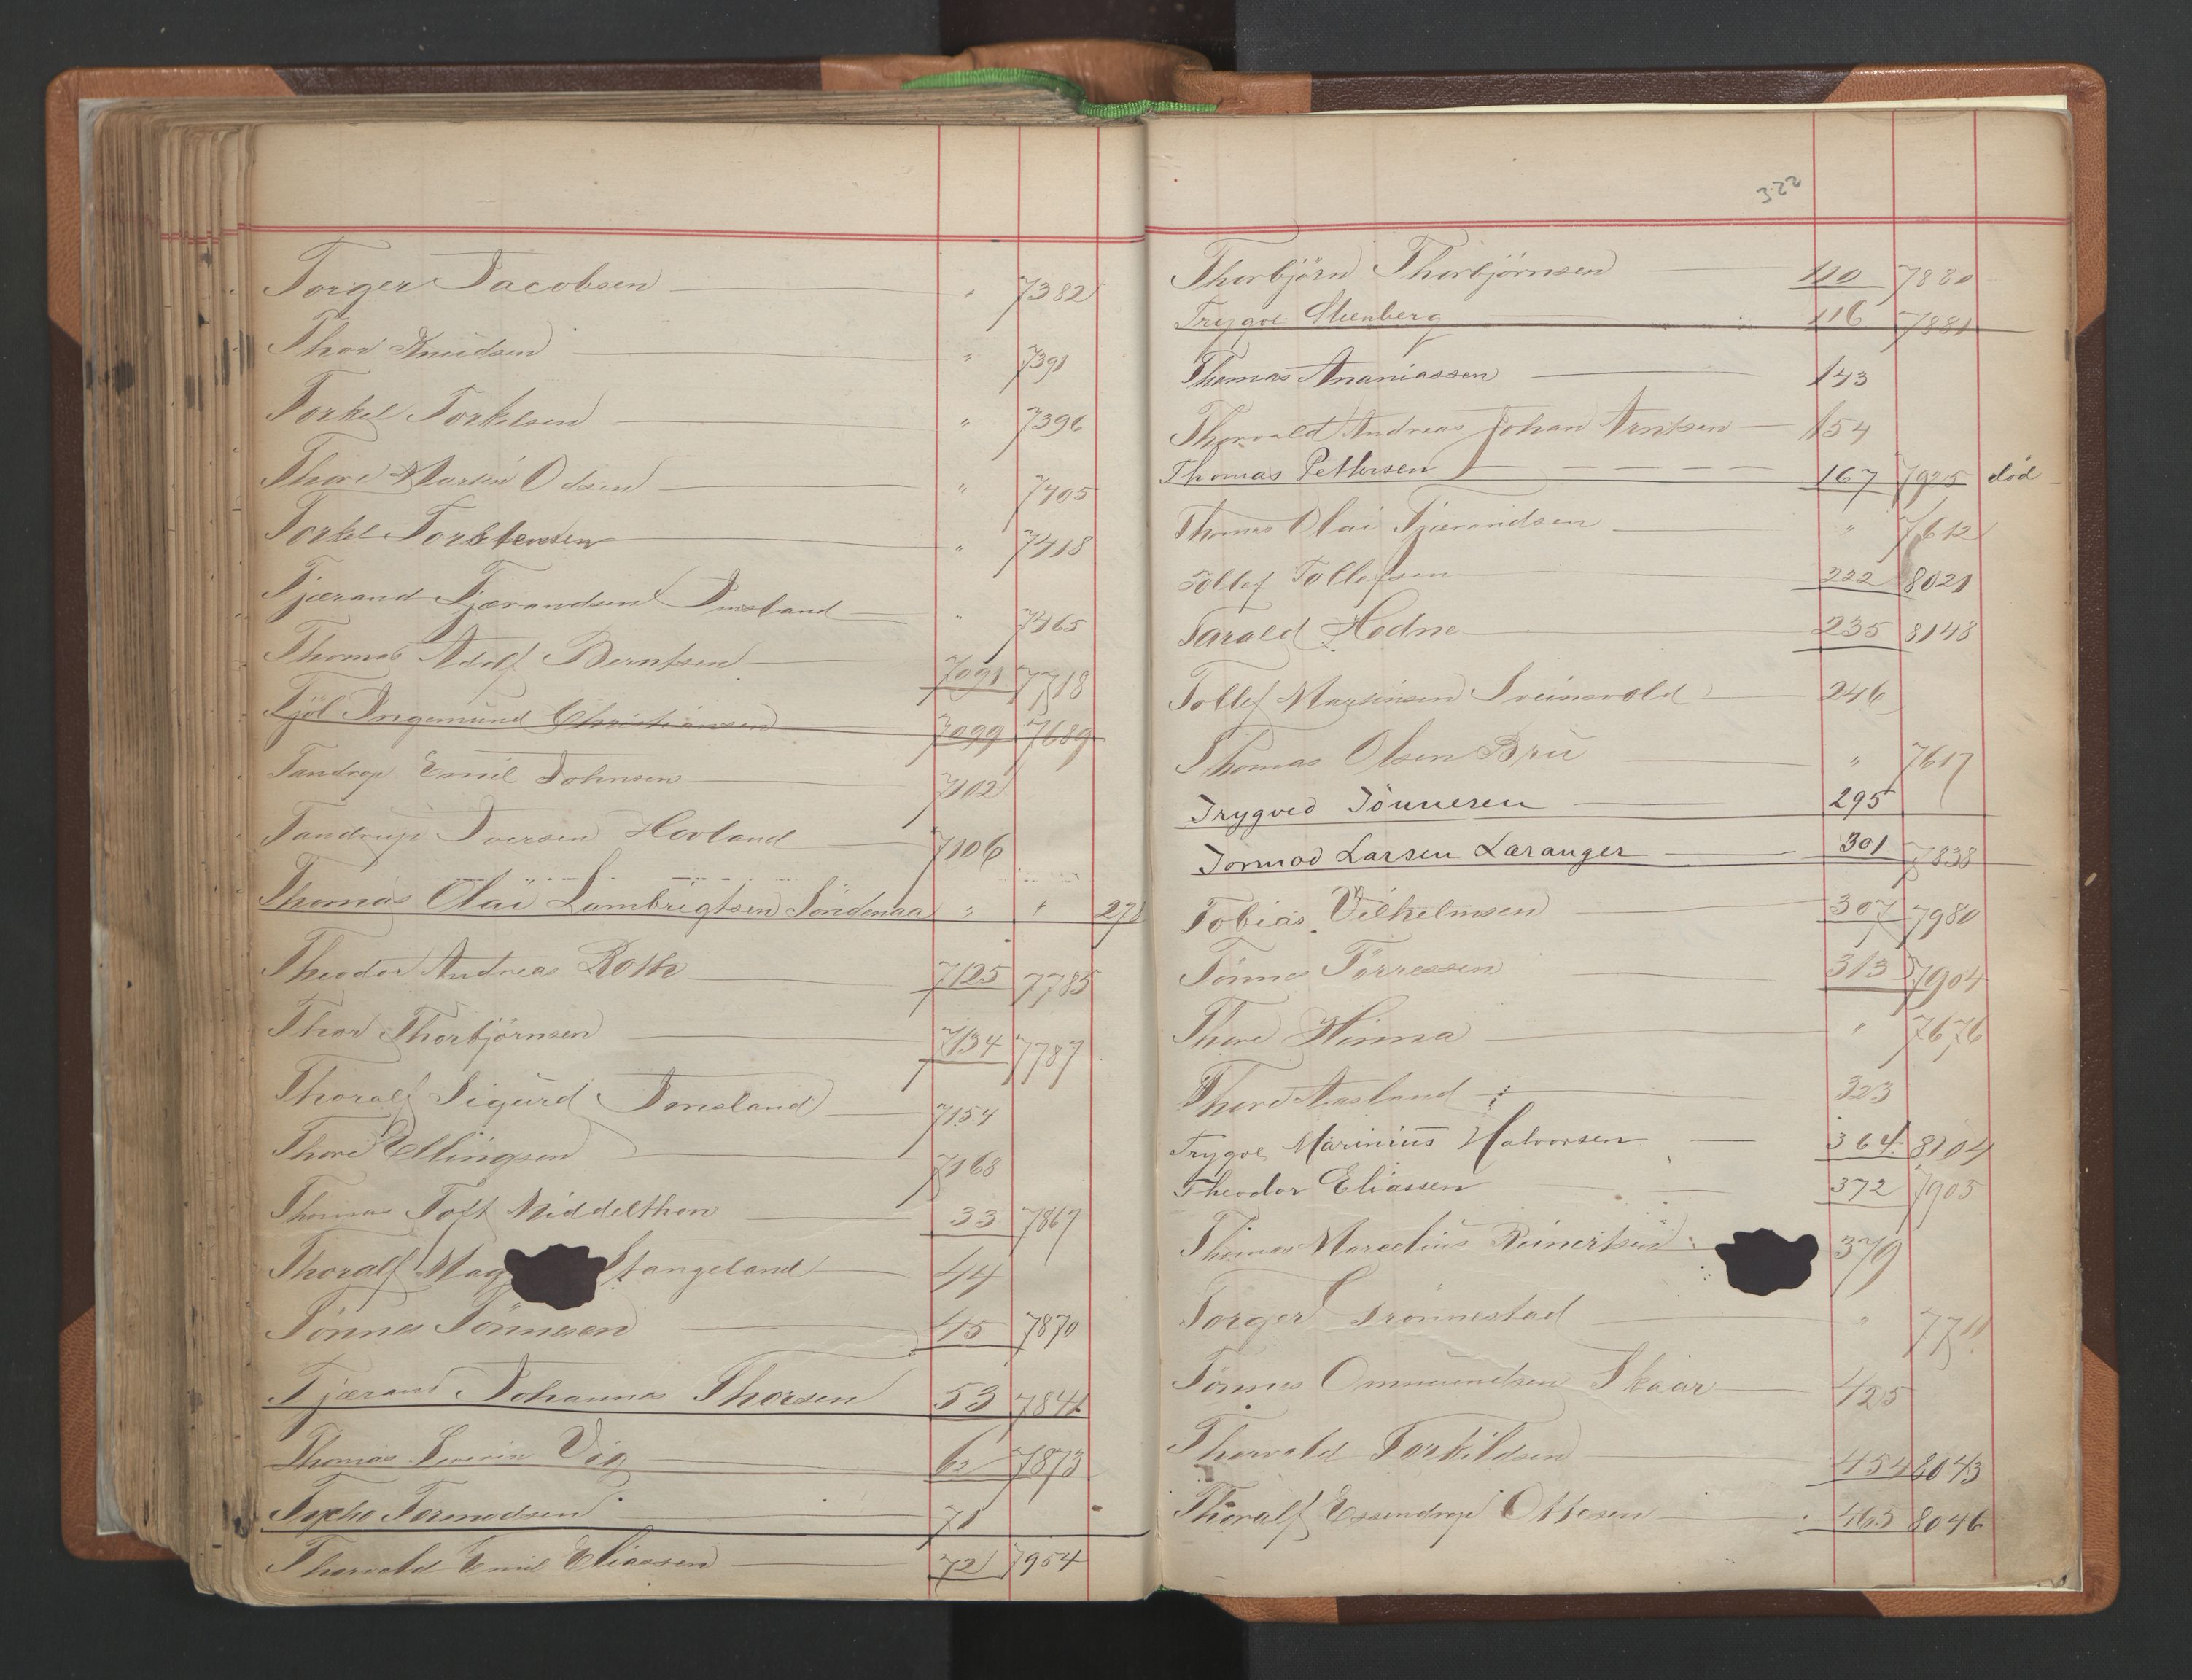 Torger Jacobsen " 7382
Thor Knudsen " 7391
Torkel Torkelsen " 7396
Thore Martin Olsen " 7405
Torkel Torstensen " 7418
Tjærand Tjærandsen Imsland " 7465
Thomas Adolf Berntsen 7091 7718
Kjöl Ingemund Christiansen 7099 7689
Tandrup Emil Johnsen 7102
Tandrup Iversen Hovland 7106
Thomas Olai Lambrigtsen Söndenaa " " 278
Theodor Andreas Roth 7125 7785
Thor Thorbjörnsen 7134 7787
Thoralf Sigurd Jonsland 7154
Thore Ellingsen 7168
Thomas Toft Middelthon 33 7867
Thoralf Mag Stangeland 44
Tönnes Tönnesen 45 7870
Tjærand Johannes Thorsen 53 7841
Thomas Severin Vig 62 7873
Tycho Tormodsen 71
Thorvald Emil Eliassen 72 7954
322
Thorbjörn Thorbjörnsen 110 7880
Trygve Steenberg 116 7881
Thomas Ananiassen 143
Thorvald Andreas Johan Arntsen 154
Thomas Pettersen 167 7925 död
Thomas Olai Tjærandsen " 7612
Tollef Tollefsen 222 8021
Tarald Hodne 235 8148
Tollef Martinsen Sveinsvold 246
Thomas Olsen Bru " 7617
Trygved Tönnesen 295
Tormod Larsen Læranger 301 7838
Tobias Vilhelmsen 307 7980
Tönnes Törressen 313 7904
Thore Hinna " 7676
Thore Aasland 323
Trygve Marinius Halvorsen 364 8104
Theodor Eliassen 372 7905
Thomas Marselius Reinertsen 379
Torger Grönnestad " 7711
Tönnes Ommundsen Skaar 425
Thorvald Torkildsen 454 8043
Thoralf Essendrop Ottesen 465 8046